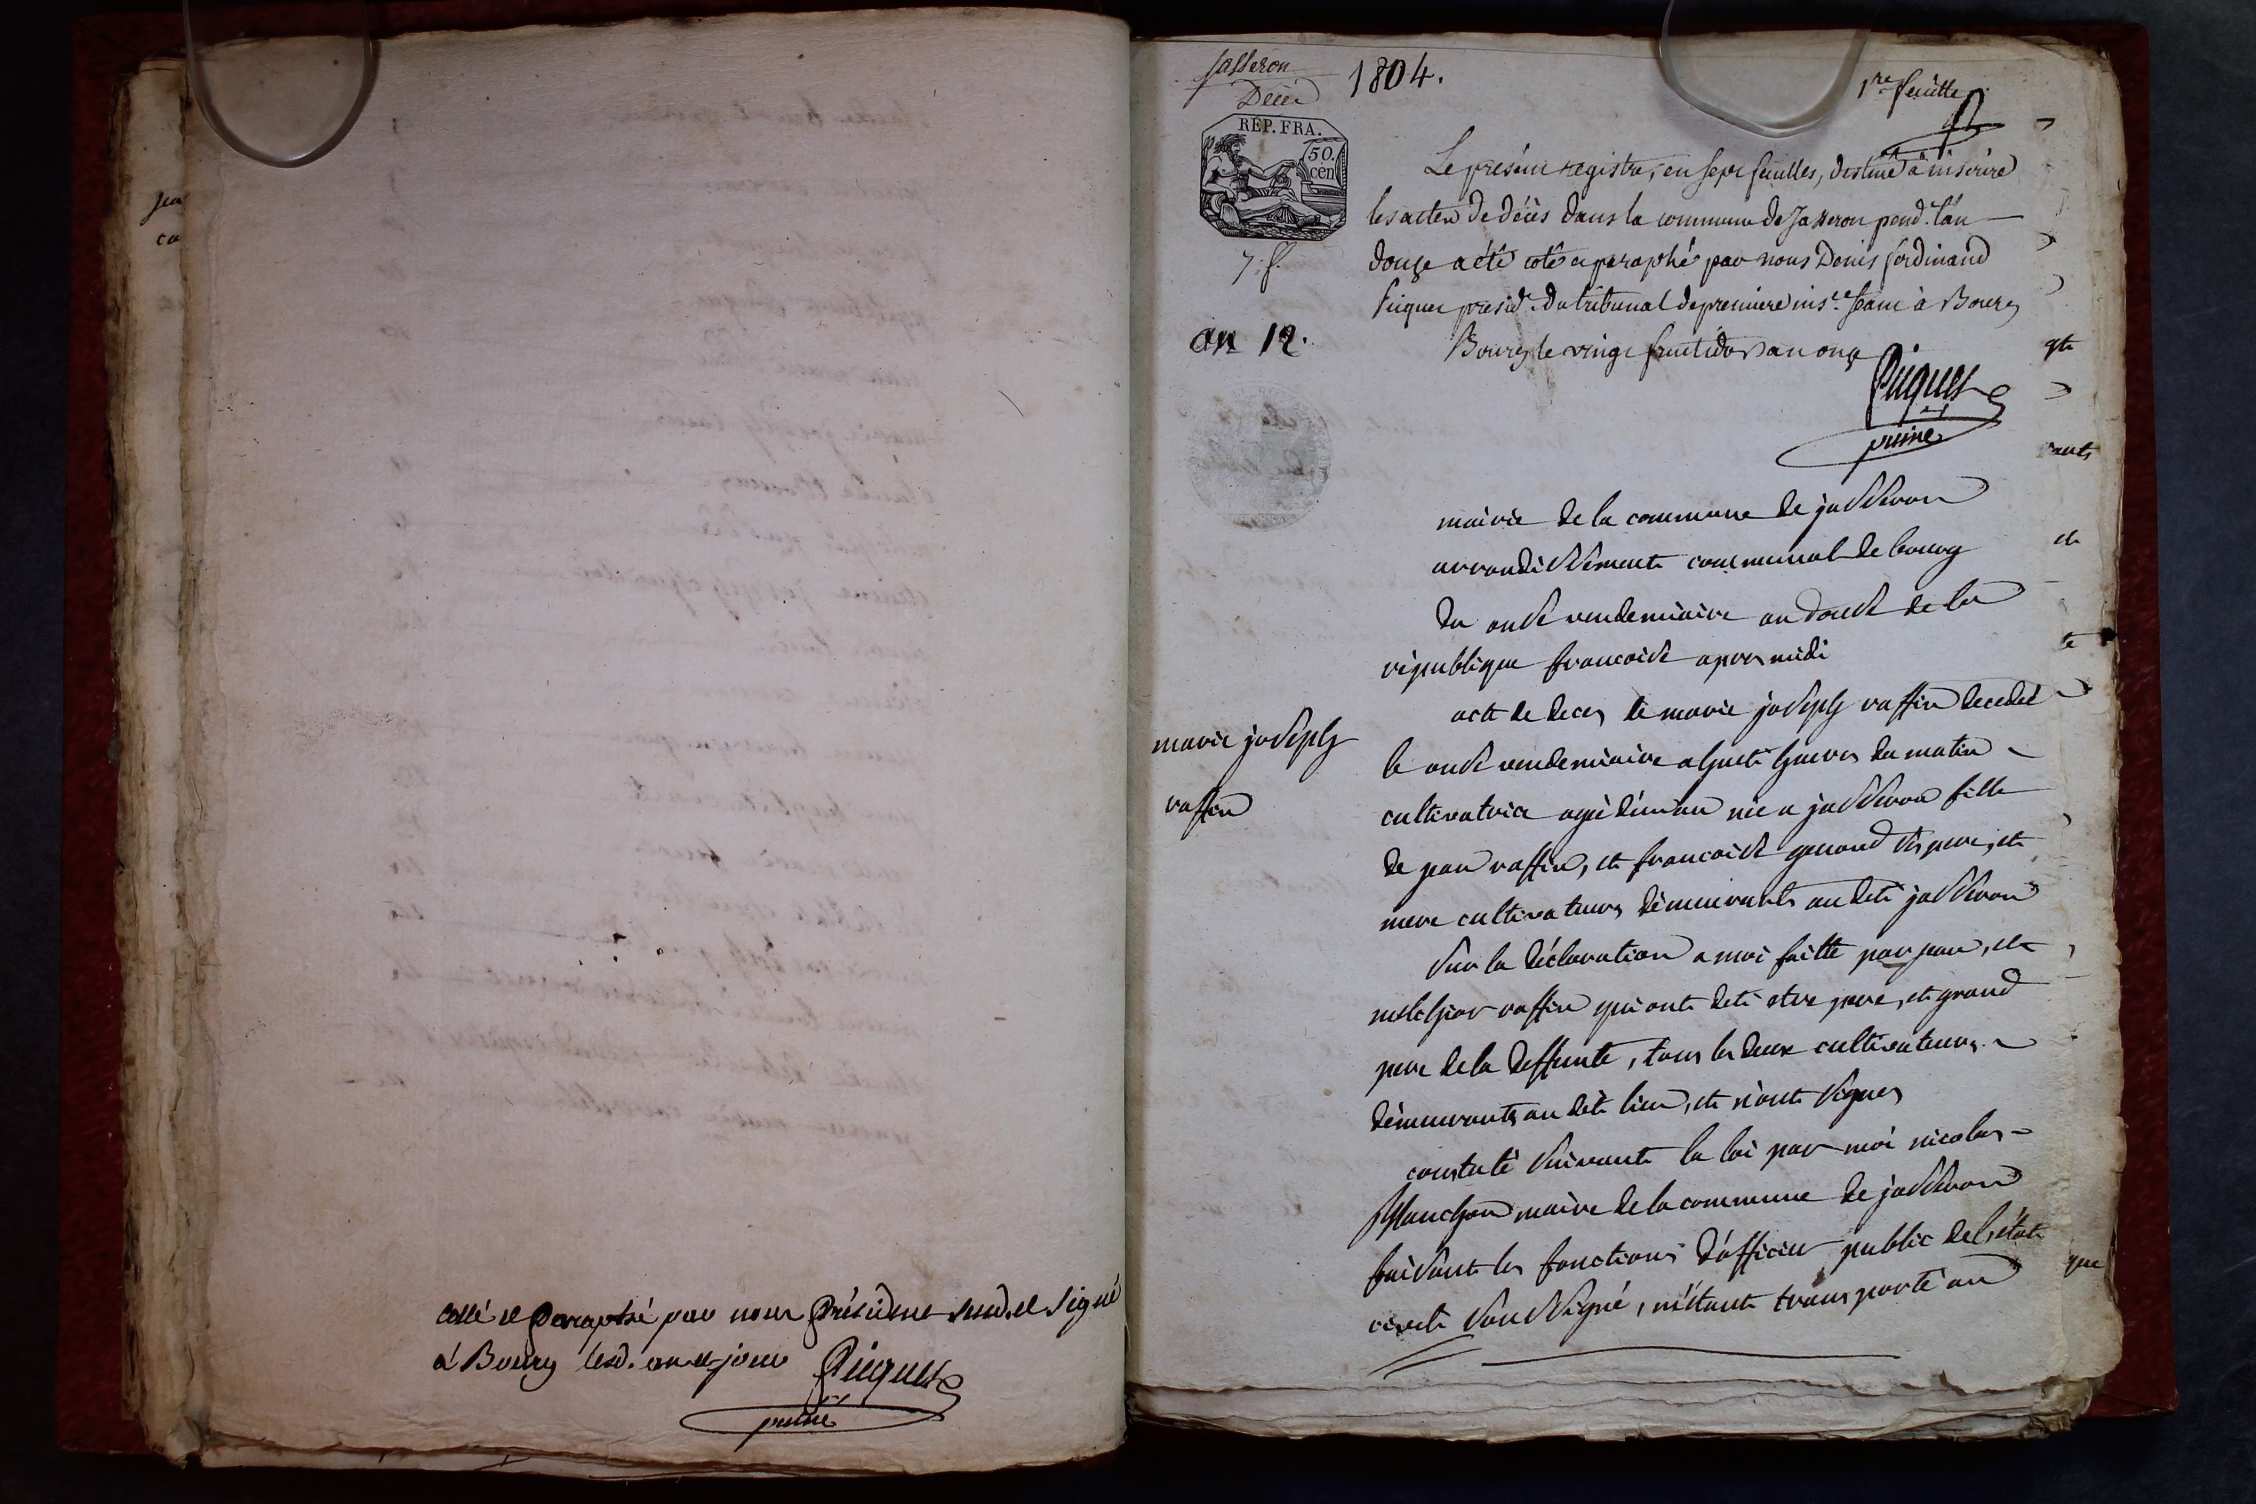 cotté et paraphé par nous président susd. et signé
à Bourg lesd. an et jour Picquet
présid
Jasseron
Décès
1804.
1re feuille
REP. FRA.
50.
cen
7. f.
an 12.
Le présent registre, en sept feuilles, destiné à inscrire
les actes de décès dans la commune de Jasseron pend.t l'an
douze a été coté et paraphé par nous Denis ferdinand
Picquet présid.t du tribunal de premiere ins.ce séant à Bourg
Bourg le vingt fructidor an onze
Picquet
présid
mairie de la commune de jasseron
arrondissement communal de bourg
du onse vendemiaire an douse de la
république francoise apres midi
marie joseph
raffin
acte de deces de marie joseph raffin decedéé
le onse vendemiaire a huit heures du matin
cultivatrice agée d'un an née a jasseron fille
de jean raffin, et francoise genand ses pere, et
mere cultivateurs démeurants au dit jasseron
sur la déclaration a moi faitte par jean, et
melchior raffin qui ont dit etre pere, et grand
pere de la deffunte, tous les deux cultivateurs
démeurants au dit lieu, et n'ont signes
constaté suivant la loi par moi nicolas
planchon maire de la commune de jasseron
faisant les fonctions d'officier public de l'état
civil soussigné, m'étant transporté au